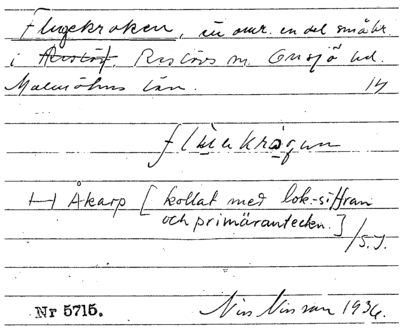 Flugekroken, en omr. en del småbr.
i Röstöf. Röstövs m. Onsjö hd.
Malmöhus län. 14
flu̱ɐkrǫqɐn
⊢⊣ Åkarp [kollat med lok.-siffran
och primäranteckn.]
/S.J.
Nr 5715. Nils Nilsson 1936.